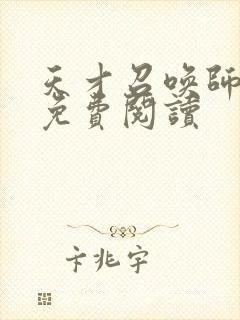 天才召喚師
免費閱讀
卞兆宇